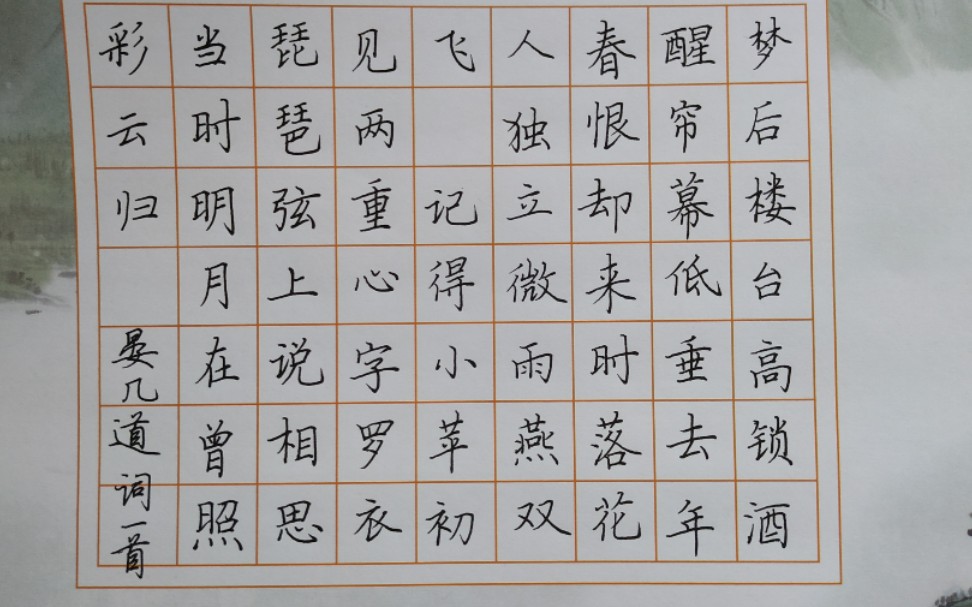 梦后楼台高锁酒
醒帘幕低垂去年
春恨却来时落花
人独立微雨燕双
飞 记得小苹初
见两重心字罗衣
琵琶弦上说相思
当时明月在曾照
彩云归
晏几道词一首